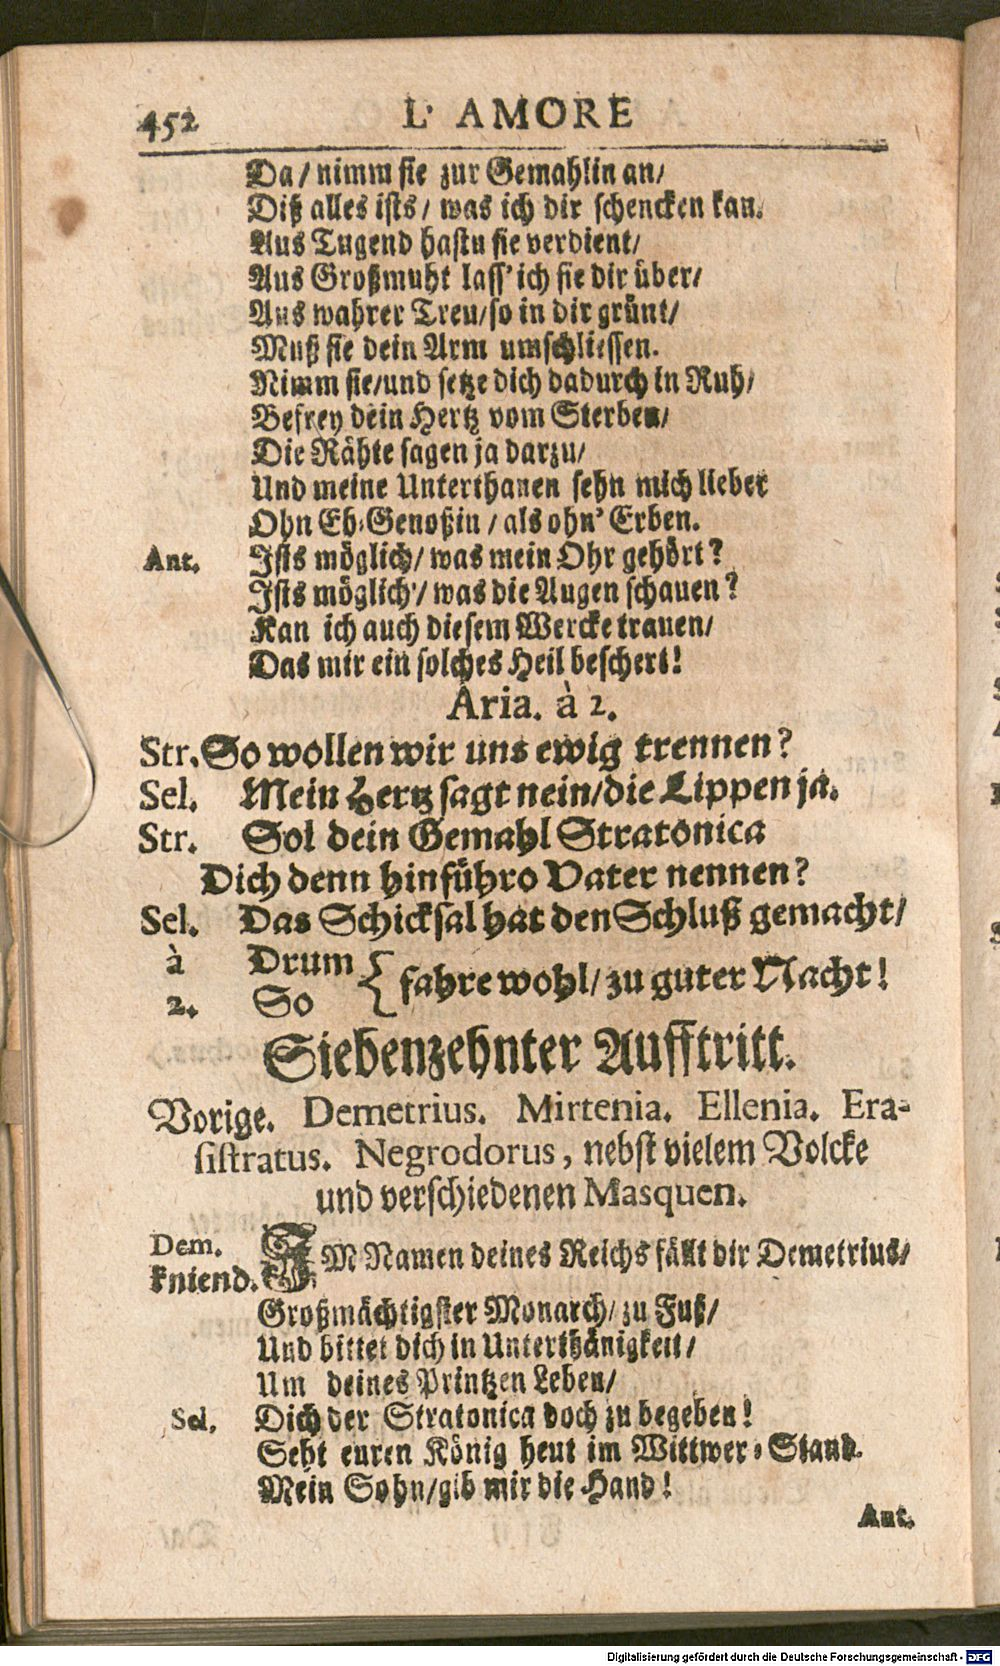 452 L' AMORE
Da / nimm sie zur Gemahlin an /
Diß alles ists / was ich dir schencken kan.
Aus Tugend hastu sie verdient /
Aus Großmuht lass' ich sie dir über /
Aus wahrer Treu / so in dir grünt /
Muß sie dein Arm umschliessen.
Nimm sie / und setze dich dadurch in Ruh /
Befrey dein Hertz vom Sterben /
Die Rähte sagen ja darzu /
Und meine Unterthanen sehn mich lieber
Ohn Eh-Genoßin / als ohn' Erben.
Ant. Ists möglich / was mein Ohr gehört?
Ists möglich / was die Augen schauen?
Kan ich auch diesem Wercke trauen /
Das mir ein solches Heil beschert!
Aria. à 2.
Str. So wollen wir uns ewig trennen?
Sel. Mein Hertz sagt nein / die Lippen ja.
Str. Sol dein Gemahl Stratonica
Dich denn hinführo Vater nennen?
Sel. Das Schicksal hat den Schluß gemacht /
à Drum { fahre wohl / zu guter Nacht!
2. So
Siebenzehnter Aufftritt.
Vorige. Demetrius. Mirtenia. Ellenia. Era-
sistratus. Negrodorus, nebst vielem Volcke
und verschiedenen Masquen.
Dem. IM Namen deines Reichs fällt dir Demetrius /
kniend.
Großmächtigster Monarch / zu Fuß /
Und bittet dich in Unterthänigkeit /
Um deines Printzen Leben /
Sel. Dich der Stratonica doch zu begeben!
Seht euren König heut im Wittwer-Stand.
Mein Sohn / gib mir die Hand!
Ant.
Digitalisierung gefördert durch die Deutsche Forschungsgemeinschaft - DFG